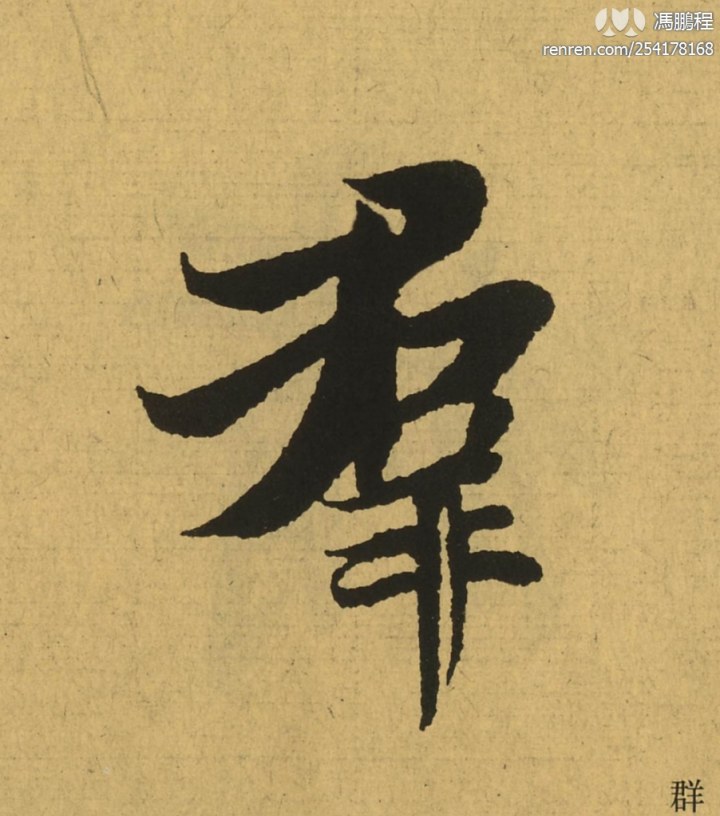 馮鵬程
renren.com/254178168
羣
群